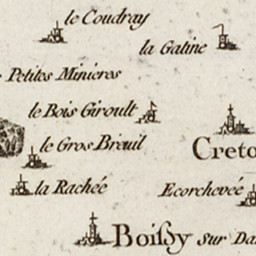 le Coudray
la Gatine
Petites Minieres
le Bois Giroult
le Gros Breuil
Creto
la Rachée
Ecorcheveé
Boiſsy sur Da